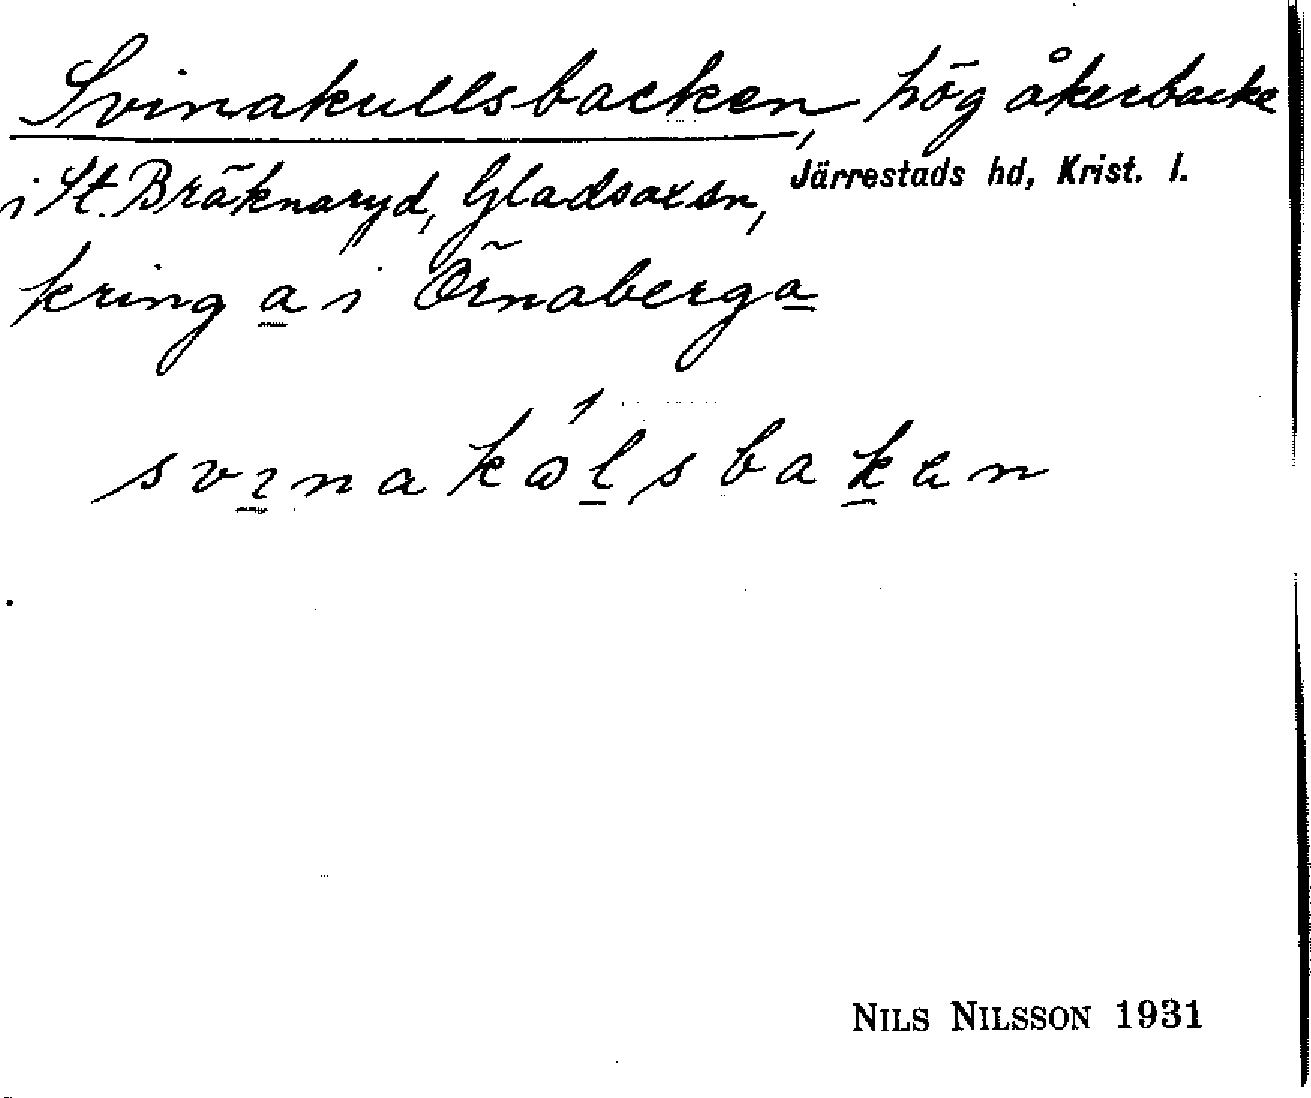 Svinakullsbacken, hög åkerbacke
i St. Bräknaryd, Gladsax sn, Järrestads hd, Krist. l.
kring a i Örnaberga
svinakålsbakan
NILS NILSSON 1931